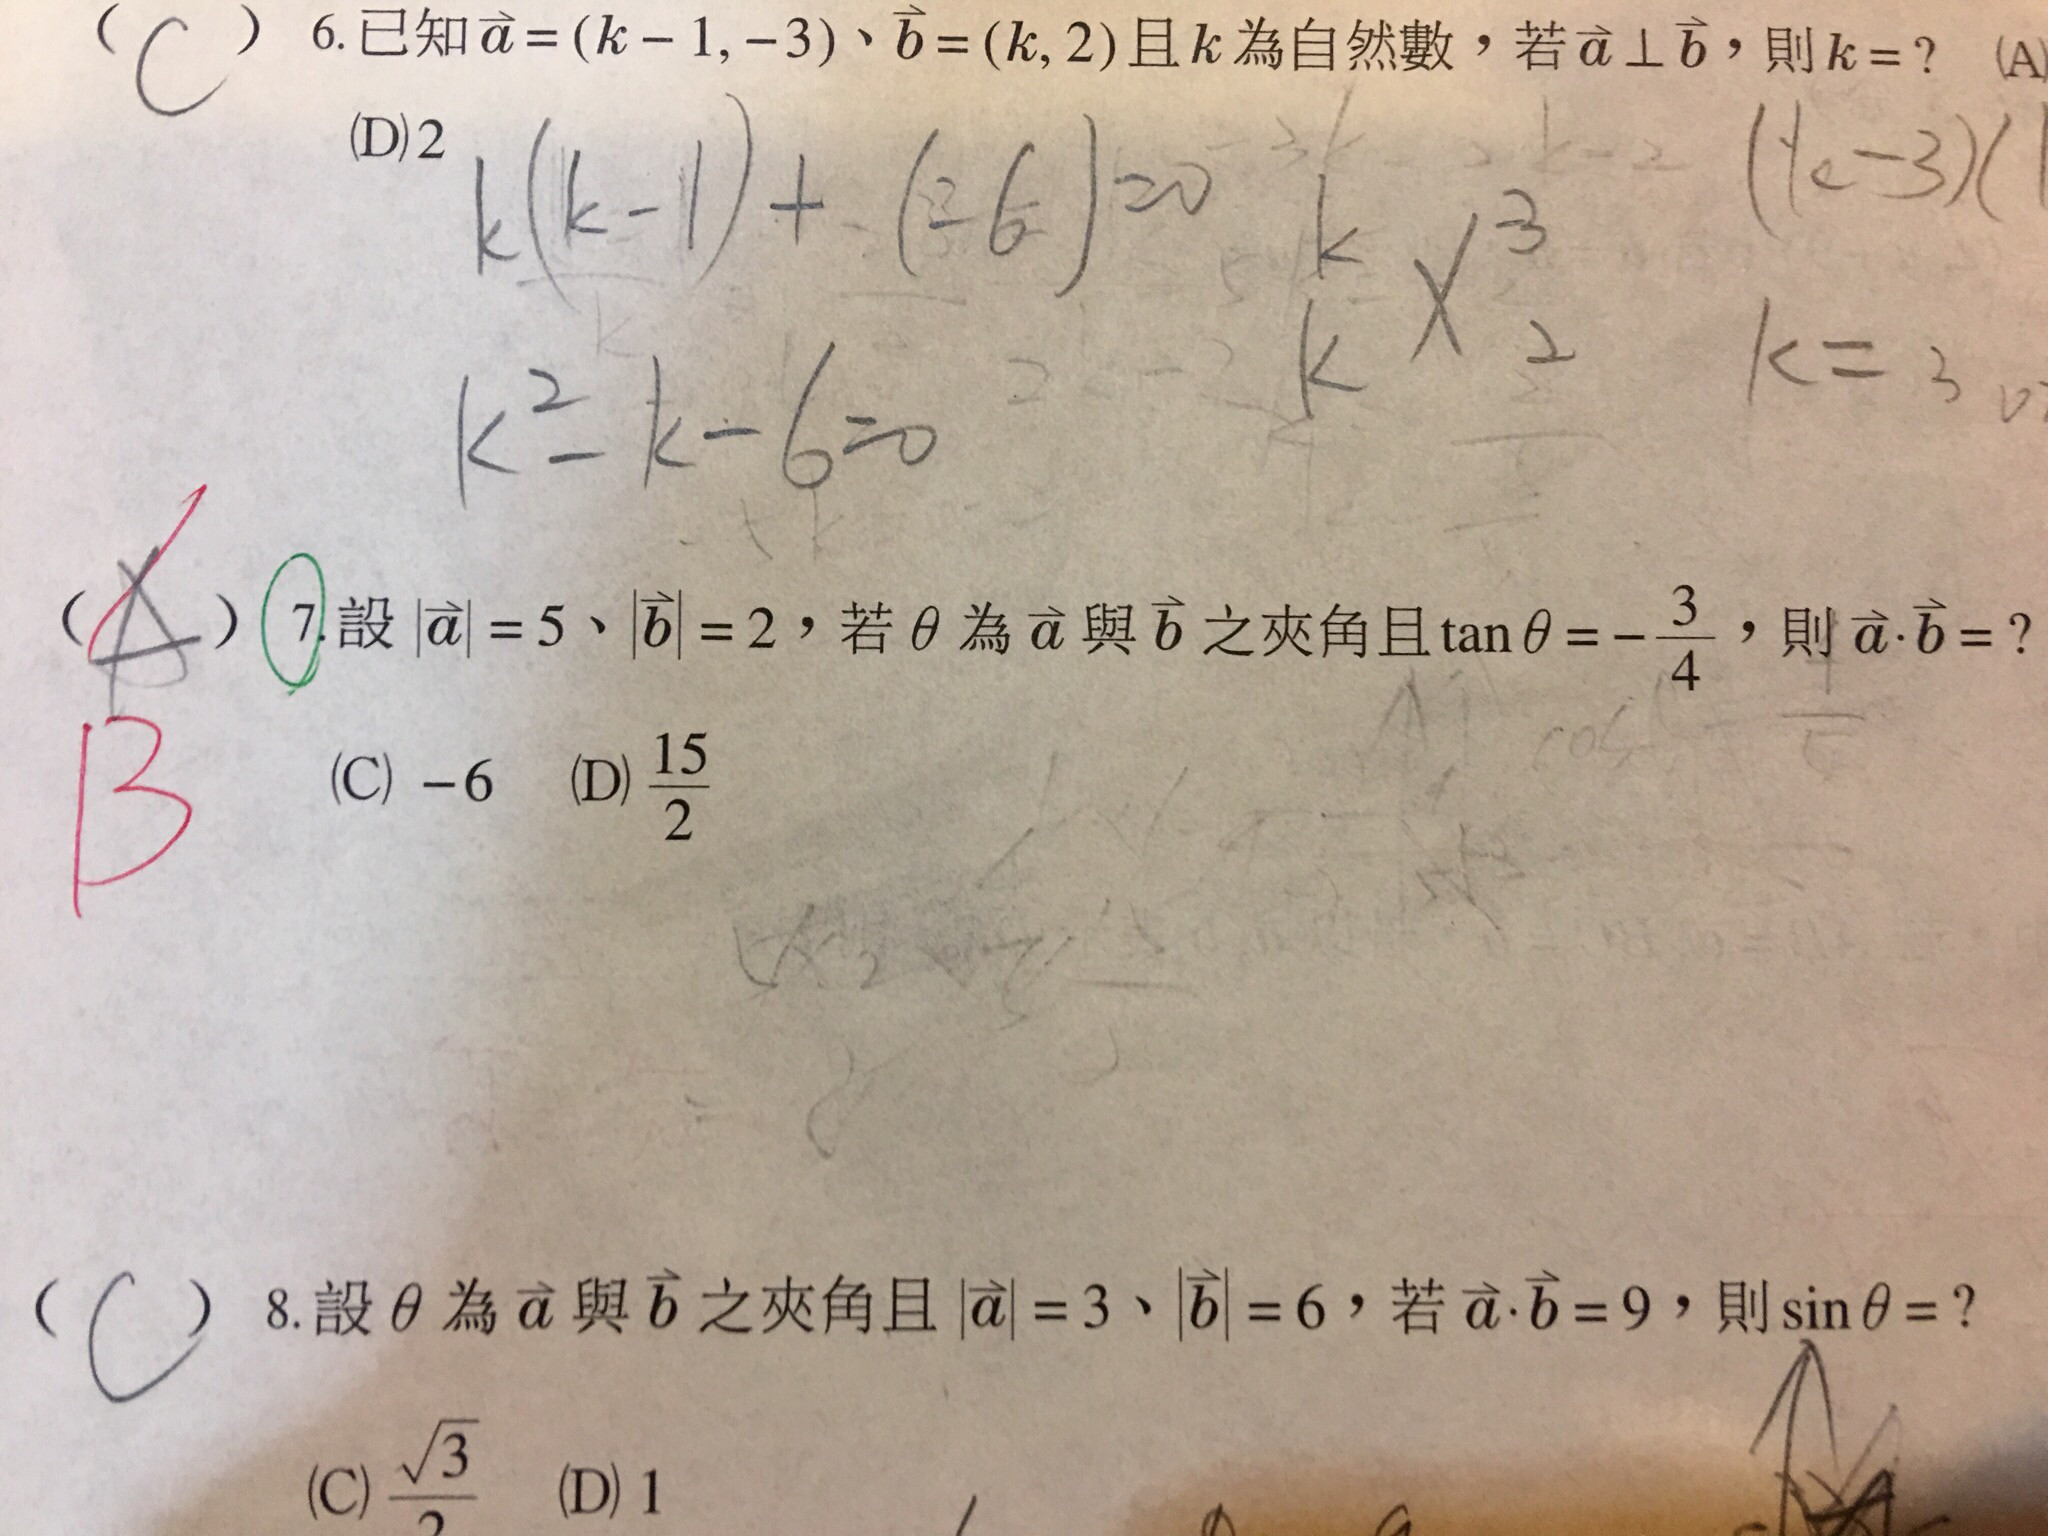 ( C ) 6. 已知 a⃗ = (k − 1, −3)、b⃗ = (k, 2) 且 k 為自然數，若 a⃗ ⊥ b⃗，則 k = ? (A)
(D) 2
k(k-1)+(-6)=0
k 3
(k-3)(
k 2
k²-k-6=0
k= 3 or
( A ) 7. 設 |a⃗| = 5、|b⃗| = 2，若 θ 為 a⃗ 與 b⃗ 之夾角且 tan θ = −3/4，則 a⃗·b⃗ = ?
B
(C) −6 (D) 15/2
( C ) 8. 設 θ 為 a⃗ 與 b⃗ 之夾角且 |a⃗| = 3、|b⃗| = 6，若 a⃗·b⃗ = 9，則 sin θ = ?
(C) √3/2 (D) 1